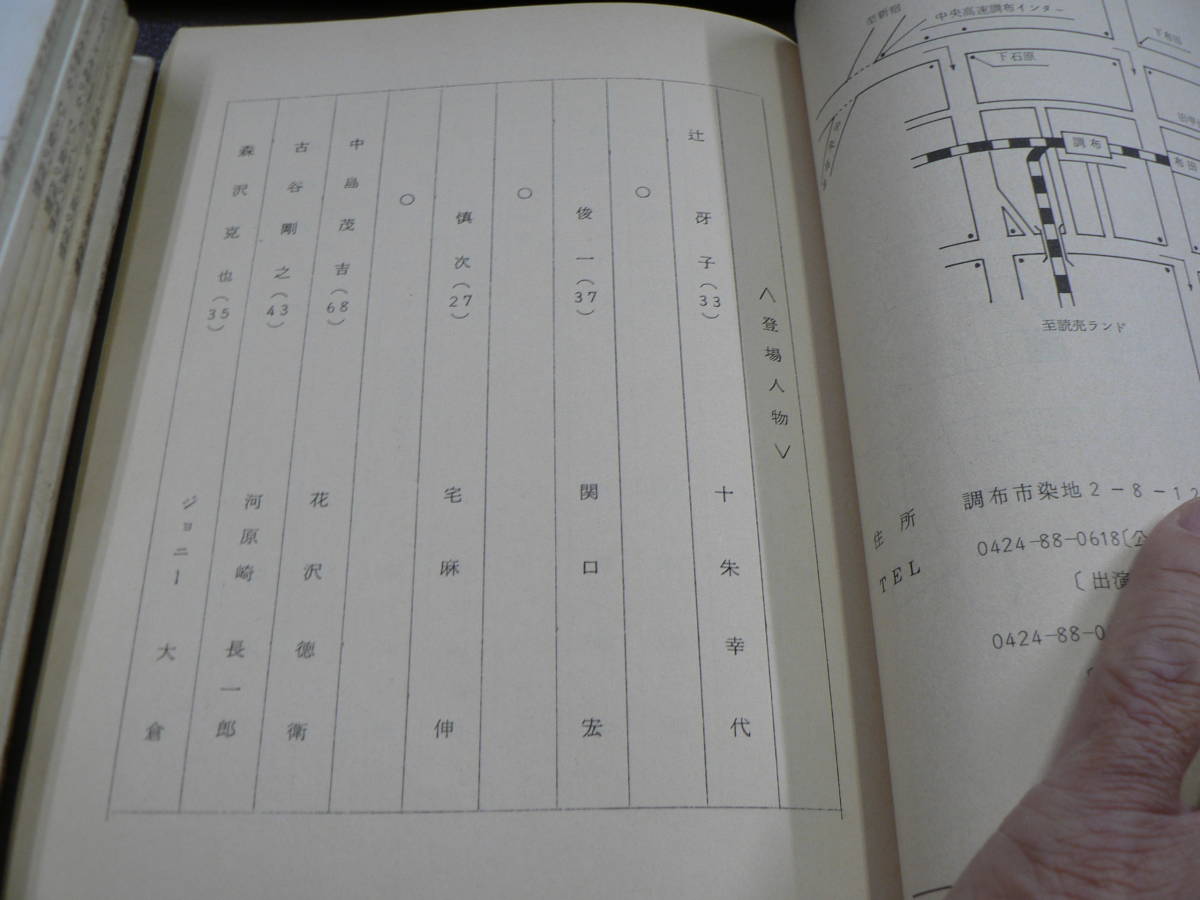 至新宿
中央高速調布インター
下石原
下布田
調布
布田
至読売ランド
住所
調布市染地2-8-12
TEL
0424-88-0618〔公
〔出演
0424-88-0
〈登場人物〉
辻 冴子(33) 十朱幸代
○
俊一(37) 関口宏
○
慎次(27) 宅麻伸
○
中島茂吉(68) 花沢徳衛
古谷剛之(43) 河原崎長一郎
森沢克也(35) ジョニー大倉